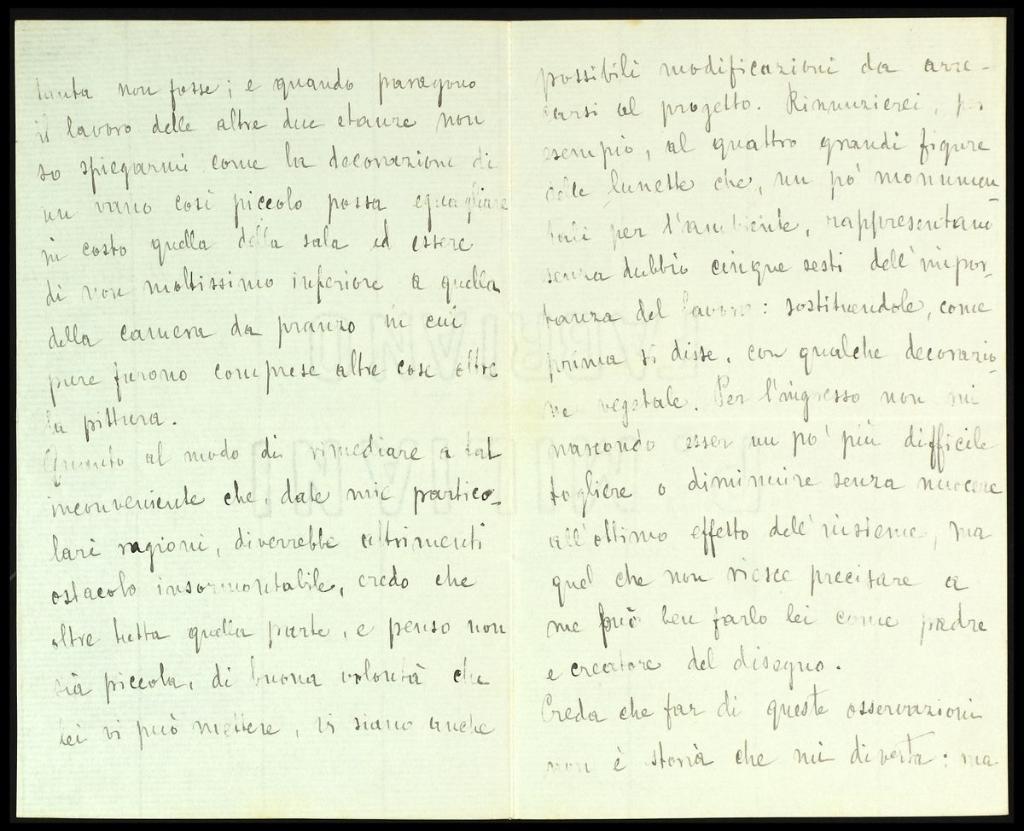 tanta non fosse; e quando paragono
il lavoro delle altre due stanze non
so spiegarmi come la decorazione di
un vano così piccolo possa eguagliare
in costo quella della sala ed essere
di non moltissimo inferiore a quella
della camera da pranzo in cui
pure furono comprese altre cose oltre
la pittura.
Quanto al modo di rimediare a tal
inconveniente che, date mie partico-
lari ragioni, diverrebbe altrimenti
ostacolo insormontabile, credo che
oltre tutta quella parte, e penso non
sia piccola, di buona volontà che
lei vi può mettere, vi siano anche
possibili modificazioni da arre-
carsi al progetto. Rinunzierei, per
esempio, al quattro grandi figure
delle lunette che, un pò monumen
tali per l'ambiente, rappresentano
senza dubbio cinque sesti dell'impor-
tanza del lavoro: sostituendole, come
prima si disse, con qualche decorazio
ne vegetale. Per l'ingresso non mi
nascondo esser un po' più difficile
togliere o diminuire senza nuocere
all'ottimo effetto dell'insieme, ma
quel che non riesce precisare a
me può ben farlo lei come padre
e creatore del disegno.
Creda che far di queste osservazioni
non è storia che mi diverta: ma
FABRIANO
P. MILIANI